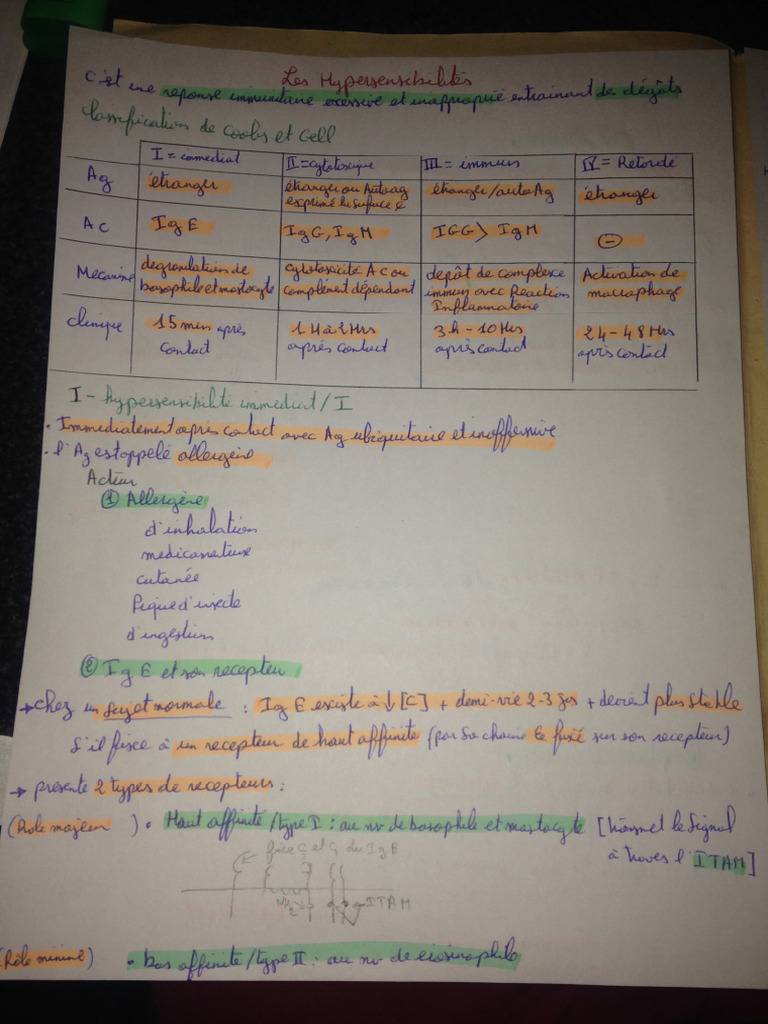 Les Hypersensibilités
C'est une réponse immunitaire excessive et inapproprié entrainant de dégâts
Classification de Coobs et Cell
I = immediat II = cytotoxique III = immuns IV = Retardé
Ag étranger étranger ou Autoag étranger/auto Ag étranger
exprimé la surface
Ac IgE IgG, IgM IGG > IgM ⊖
Mécanisme dégranulations de cytotoxicité Ac ou depôt de complexe Activation de
basophile et mastocyte complément dépendant immun avec Réaction macrophage
Inflammatoire
clinique 15 min après 1 H à 2 Hrs 3h - 10 Hrs 24 - 48 Hrs
contact après contact après contact après contact
I - Hypersensibilité immediat / I
. Immediatement après contact avec Ag ubiquitaire et inoffensive
. l'Ag est appelé allergène
Acteur
① Allergène
d'inhalation
medicamenteuse
cutanée
Pique d'insecte
d'ingestion
② IgE et son recepteur
→ chez un sujet normale : IgE existe à ↓ [C] + demi-vie 2-3 jrs + devient plus stable
s'il fixe à un recepteur de haut affinité (par sa chaine fixé sur son recepteur)
→ présente 2 types de recepteurs :
(Role majeur) • Haut affinité / type I : au nv de basophile et mastocyte [transmet le signal
à travers l'ITAM]
fixe C et C du IgE
ITAM
(Rôle minime) • bas affinité / type II : au nv de eiosinophile